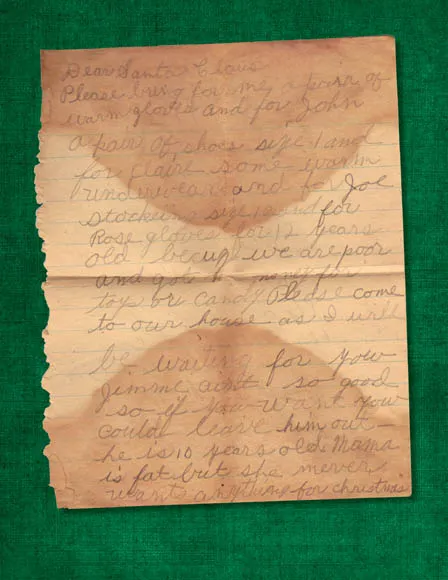 Dear Santa Claus
Please bring for me, a pair of
warm gloves and for John
a pair of shoes size 1 and
for Claire some warm
underwear and for Joe
stockings size 12 and for
Rose gloves for 12 years
old we are poor
and got money for
toys or candy Please come
to our house as I will
be waiting for you
Jimme aint so good
so if you want you
could leave him out
he is 10 years old. Mama
is fat but she never
wants anything for christmas